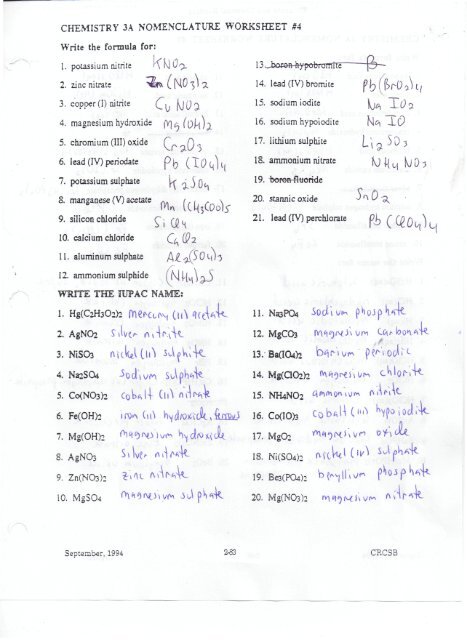 CHEMISTRY 3A NOMENCLATURE WORKSHEET #4
Write the formula for:
1. potassium nitrite KNO2
2. zinc nitrate Zn(NO3)2
3. copper (I) nitrite Cu NO2
4. magnesium hydroxide Mg(OH)2
5. chromium (III) oxide Cr2O3
6. lead (IV) periodate Pb (IO4)4
7. potassium sulphate K2SO4
8. manganese (V) acetate Mn (CH3COO)5
9. silicon chloride SiCl4
10. calcium chloride CaCl2
11. aluminum sulphate Al2(SO4)3
12. ammonium sulphide (NH4)2S
13. boron hypobromite B
14. lead (IV) bromite Pb(BrO2)4
15. sodium iodite Na IO2
16. sodium hypoiodite Na IO
17. lithium sulphite Li2SO3
18. ammonium nitrate NH4 NO3
19. boron fluoride
20. stannic oxide SnO2
21. lead (IV) perchlorate Pb(ClO4)4
WRITE THE IUPAC NAME:
1. Hg(C2H3O2)2 mercury (II) acetate
2. AgNO2 silver nitrite
3. NiSO3 nickel (II) sulphite
4. Na2SO4 sodium sulphate
5. Co(NO3)2 cobalt (II) nitrate
6. Fe(OH)2 iron (II) hydroxide, ferrous
7. Mg(OH)2 magnesium hydroxide
8. AgNO3 silver nitrate
9. Zn(NO3)2 zinc nitrate
10. MgSO4 magnesium sulphate
11. Na3PO4 sodium phosphate
12. MgCO3 magnesium carbonate
13. Ba(IO4)2 barium periodic
14. Mg(ClO2)2 magnesium chlorite
15. NH4NO2 ammonium nitrite
16. Co(IO)3 cobalt (III) hypoiodite
17. MgO2 magnesium oxide
18. Ni(SO4)2 nickel (IV) sulphate
19. Be3(PO4)2 beryllium phosphate
20. Mg(NO3)2 magnesium nitrate
September, 1994 2-63 CRCSB